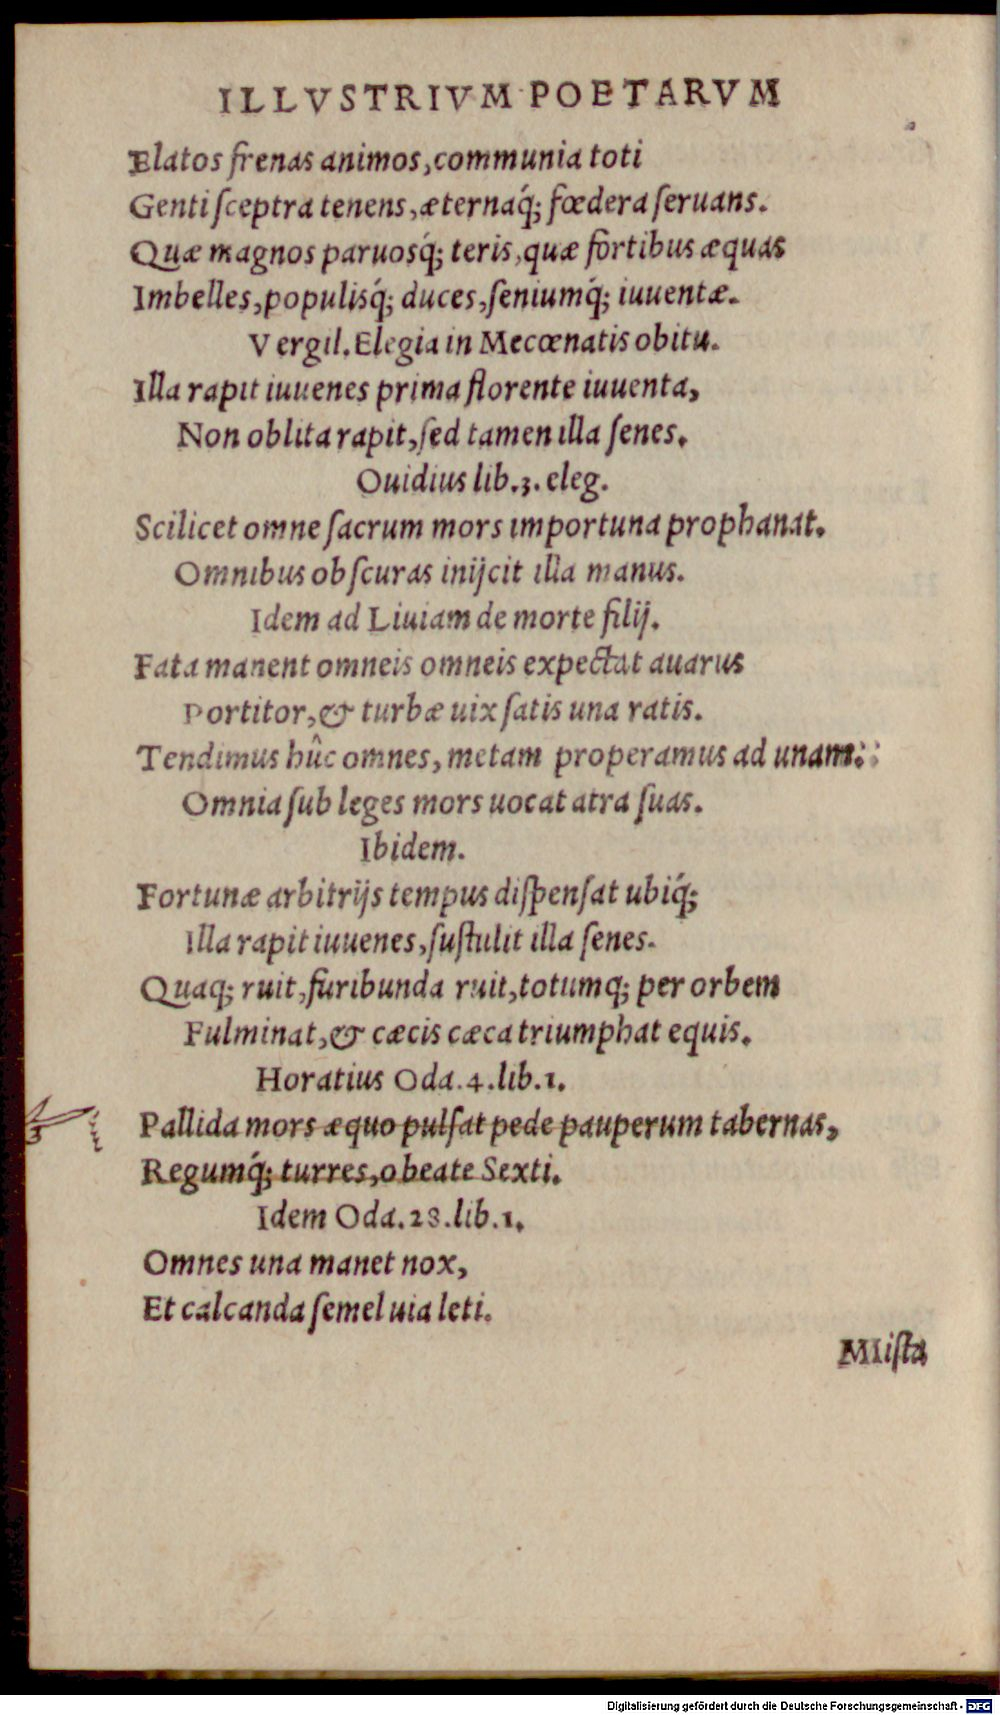 ILLVSTRIVM POETARVM
Elatos frenas animos, communia toti
Genti ſceptra tenens, æternaq́; fœdera ſeruans.
Quæ magnos paruosq́; teris, quæ fortibus æquas
Imbelles, populisq́; duces, ſeniumq́; iuuentæ.
Vergil. Elegia in Mecœnatis obitu.
Illa rapit iuuenes prima florente iuuenta,
Non oblita rapit, ſed tamen illa ſenes.
Ouidius lib. 3. eleg.
Scilicet omne ſacrum mors importuna prophanat.
Omnibus obſcuras inijcit illa manus.
Idem ad Liuiam de morte filij.
Fata manent omneis omneis expectat auarus
Portitor, & turbæ uix ſatis una ratis.
Tendimus hûc omnes, metam properamus ad unam:
Omnia ſub leges mors uocat atra ſuas.
Ibidem.
Fortunæ arbitrijs tempus diſpenſat ubiq́;
Illa rapit iuuenes, ſuſtulit illa ſenes.
Quaq; ruit, furibunda ruit, totumq; per orbem
Fulminat, & cæcis cæca triumphat equis.
Horatius Oda. 4. lib. 1.
Pallida mors æquo pulſat pede pauperum tabernas,
Regumq́; turres, o beate Sexti.
Idem Oda. 28. lib. 1.
Omnes una manet nox,
Et calcanda ſemel uia leti.
Miſta
Digitalisierung gefördert durch die Deutsche Forschungsgemeinschaft - DFG